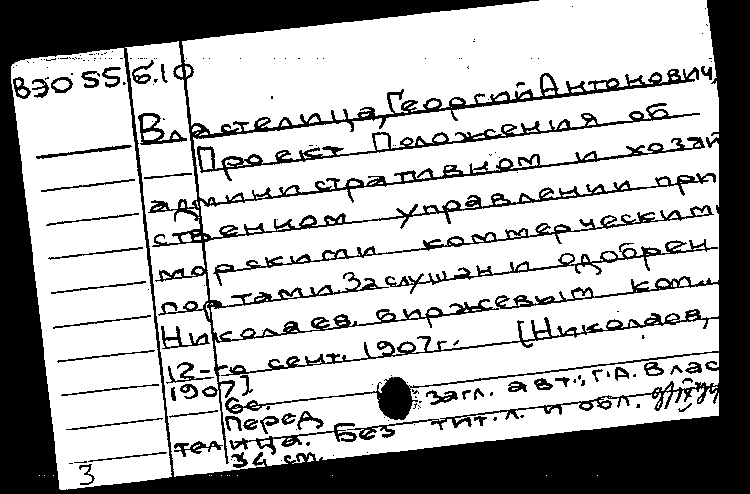 ВЭО 55.6.10
Властелица, Георгий Антонович,
Проект Положения об
административном и хозяй
ственном управлении при
морскими коммерческими
портами. Заслушан и одобрен
Николаев. биржевым ком...
12-го сент. 1907г. [Николаев,
1907]
6с.
Перед загл. авт.: Г.А. Влас
телица. Без тит. л. и обл.
34 см.
3